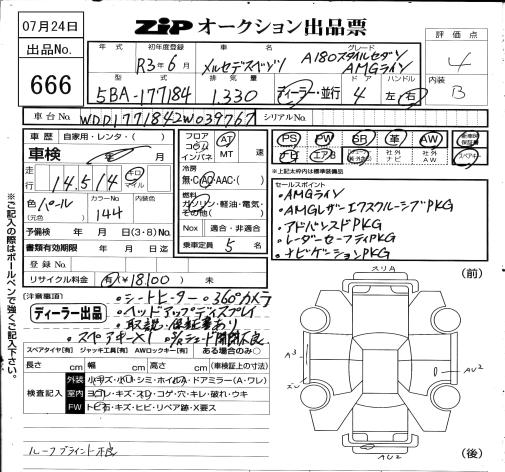 07月24日
ZiP オークション出品票
出品No.
666
年式
初年度登録
R3年6月
車名
メルセデスベンツ
グレード
A180スタイルセダン
AMGライン
評価点
4
型式
5BA-177184
排気量
1.330
ディーラー・並行
ドア
4
ハンドル
左・右
内装
B
車台No.
WDD1771842W039767
シリアルNo.
車歴 自家用・レンタ・( )
車検 年 月
走行 14,514 キロ マイル
色 パール
(元色)
カラーNo.
144
内装色
予備検 年 月 日(3・8)No.
書類有効期限 年 月 日迄
登録No.
リサイクル料金 有(¥18.00) 未
フロア
コラム
インパネ
AT
MT 速
冷房
無・C・AC・AAC・( )
燃料
ガソリン・軽油・電気・
その他( )
Nox 適合・非適合
乗車定員 5 名
PS PW SR 革 AW 新車時保証書
ナビ エアB 社外ナビ 社外AW スペアキー
※上記太枠内は標準装備品
セールスポイント
・AMGライン
・AMGレザーエクスクルーシブPKG
・アドバンスドPKG
・レーダーセーフティPKG
・ナビゲーションPKG
※ご記入の際はボールペンで強くご記入下さい。
(注意事項)
ディーラー出品
・シートヒーター ・360°カメラ
・ヘッドアップディスプレイ
・取説・保証書あり
・スペアキー×1 ・シェード開閉不良
スペアタイヤ[有] ジャッキ工具[有] AWロックキー[有] ある場合のみ○
長さ cm 幅 cm 高さ cm (車検証上の寸法)
検査記入
外装 小キズ・小凹・シミ・ホイルA・ドアミラー(A・ワレ)
室内 ヨゴレ・キズ・スリ・コゲ・穴・キレ・破れ・ウキ
FW トビ石・キズ・ヒビ・リペア跡・X要ス
ルーフブラインド不良
(前)
スリA
A3
AU2
AU2
(後)